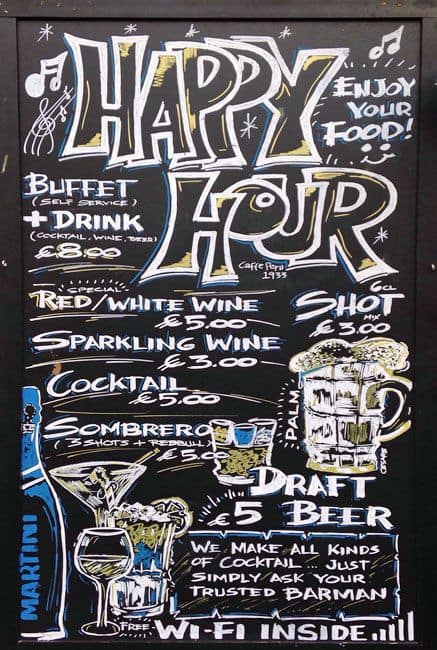 HAPPY
HOUR
ENJOY
YOUR
FOOD!
BUFFET
(SELF SERVICE)
+ DRINK
(COCKTAIL, WINE, BEER)
€8.00
Caffe Perù
1933
SPECIAL
RED/WHITE WINE
€5.00
SPARKLING WINE
€3.00
COCKTAIL
€5.00
SOMBRERO
(3 SHOTS + REDBULL)
€5.00
6CL
SHOT
MIX
€3.00
PALM
DRAFT
€5 BEER
MARTINI
WE MAKE ALL KINDS
OF COCKTAIL ... JUST
SIMPLY ASK YOUR
TRUSTED BARMAN
FREE WI-FI INSIDE